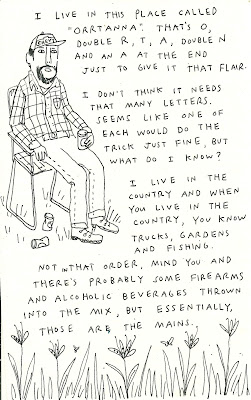 I LIVE IN THIS PLACE CALLED
"ORRTANNA". THAT'S O,
DOUBLE R, T, A, DOUBLE N
AND AN A AT THE END
JUST TO GIVE IT THAT FLAIR.
I DON'T THINK IT NEEDS
THAT MANY LETTERS.
SEEMS LIKE ONE OF
EACH WOULD DO THE
TRICK JUST FINE, BUT
WHAT DO I KNOW?
I LIVE IN THE
COUNTRY AND WHEN
YOU LIVE IN THE
COUNTRY, YOU KNOW
TRUCKS, GARDENS
AND FISHING.
NOT IN THAT ORDER, MIND YOU AND
THERE'S PROBABLY SOME FIREARMS
AND ALCOHOLIC BEVERAGES THROWN
INTO THE MIX, BUT ESSENTIALLY,
THOSE ARE THE MAINS.